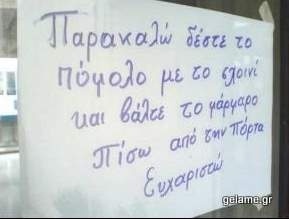 Παρακαλώ δέστε το
πόμολο με το σχοινί
και βάλτε το μάρμαρο
πίσω από την πόρτα
Ευχαριστώ
gelame.gr